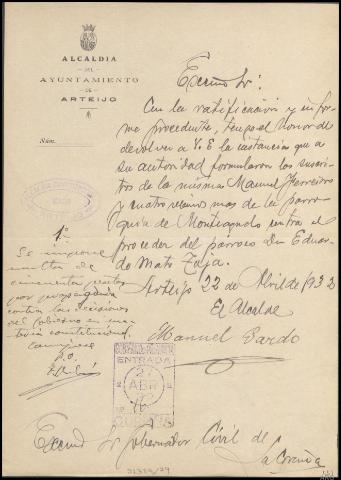 ALCALDIA
DEL
AYUNTAMIENTO
DE
ARTEIJO
Núm.
Excmo Sr:
Con la ratificacion y informe
procedente, tengo el honor de
devolver a V. E la instancia que a
su autoridad formularon los suscritos
de la misma Manuel Ferreiro
y cuatro vecinos mas de la parroquia
de Monteagudo contra el
proceder del parroco Dn Eduardo
Mato
Arteijo 22 de Abril de 1932
El Alcalde
Manuel Pardo
1ª
Se impone
multa de
cincuenta pesetas
por propaganda
contra las decisiones
del gobierno en materia
constitucional
P.O.
ENTRADA
ABR
CORUÑA
Excmo Sr Gobernador Civil de
La Coruña